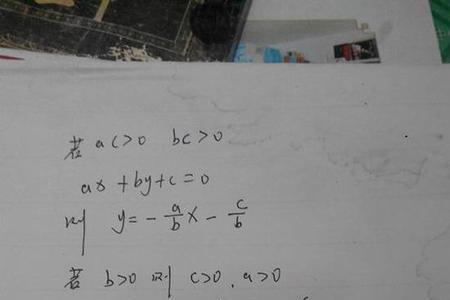 若 ac>0 bc>0
ax+by+c=0
则 y=-\frac{a}{b}x-\frac{c}{b}
若 b>0 则 c>0, a>0